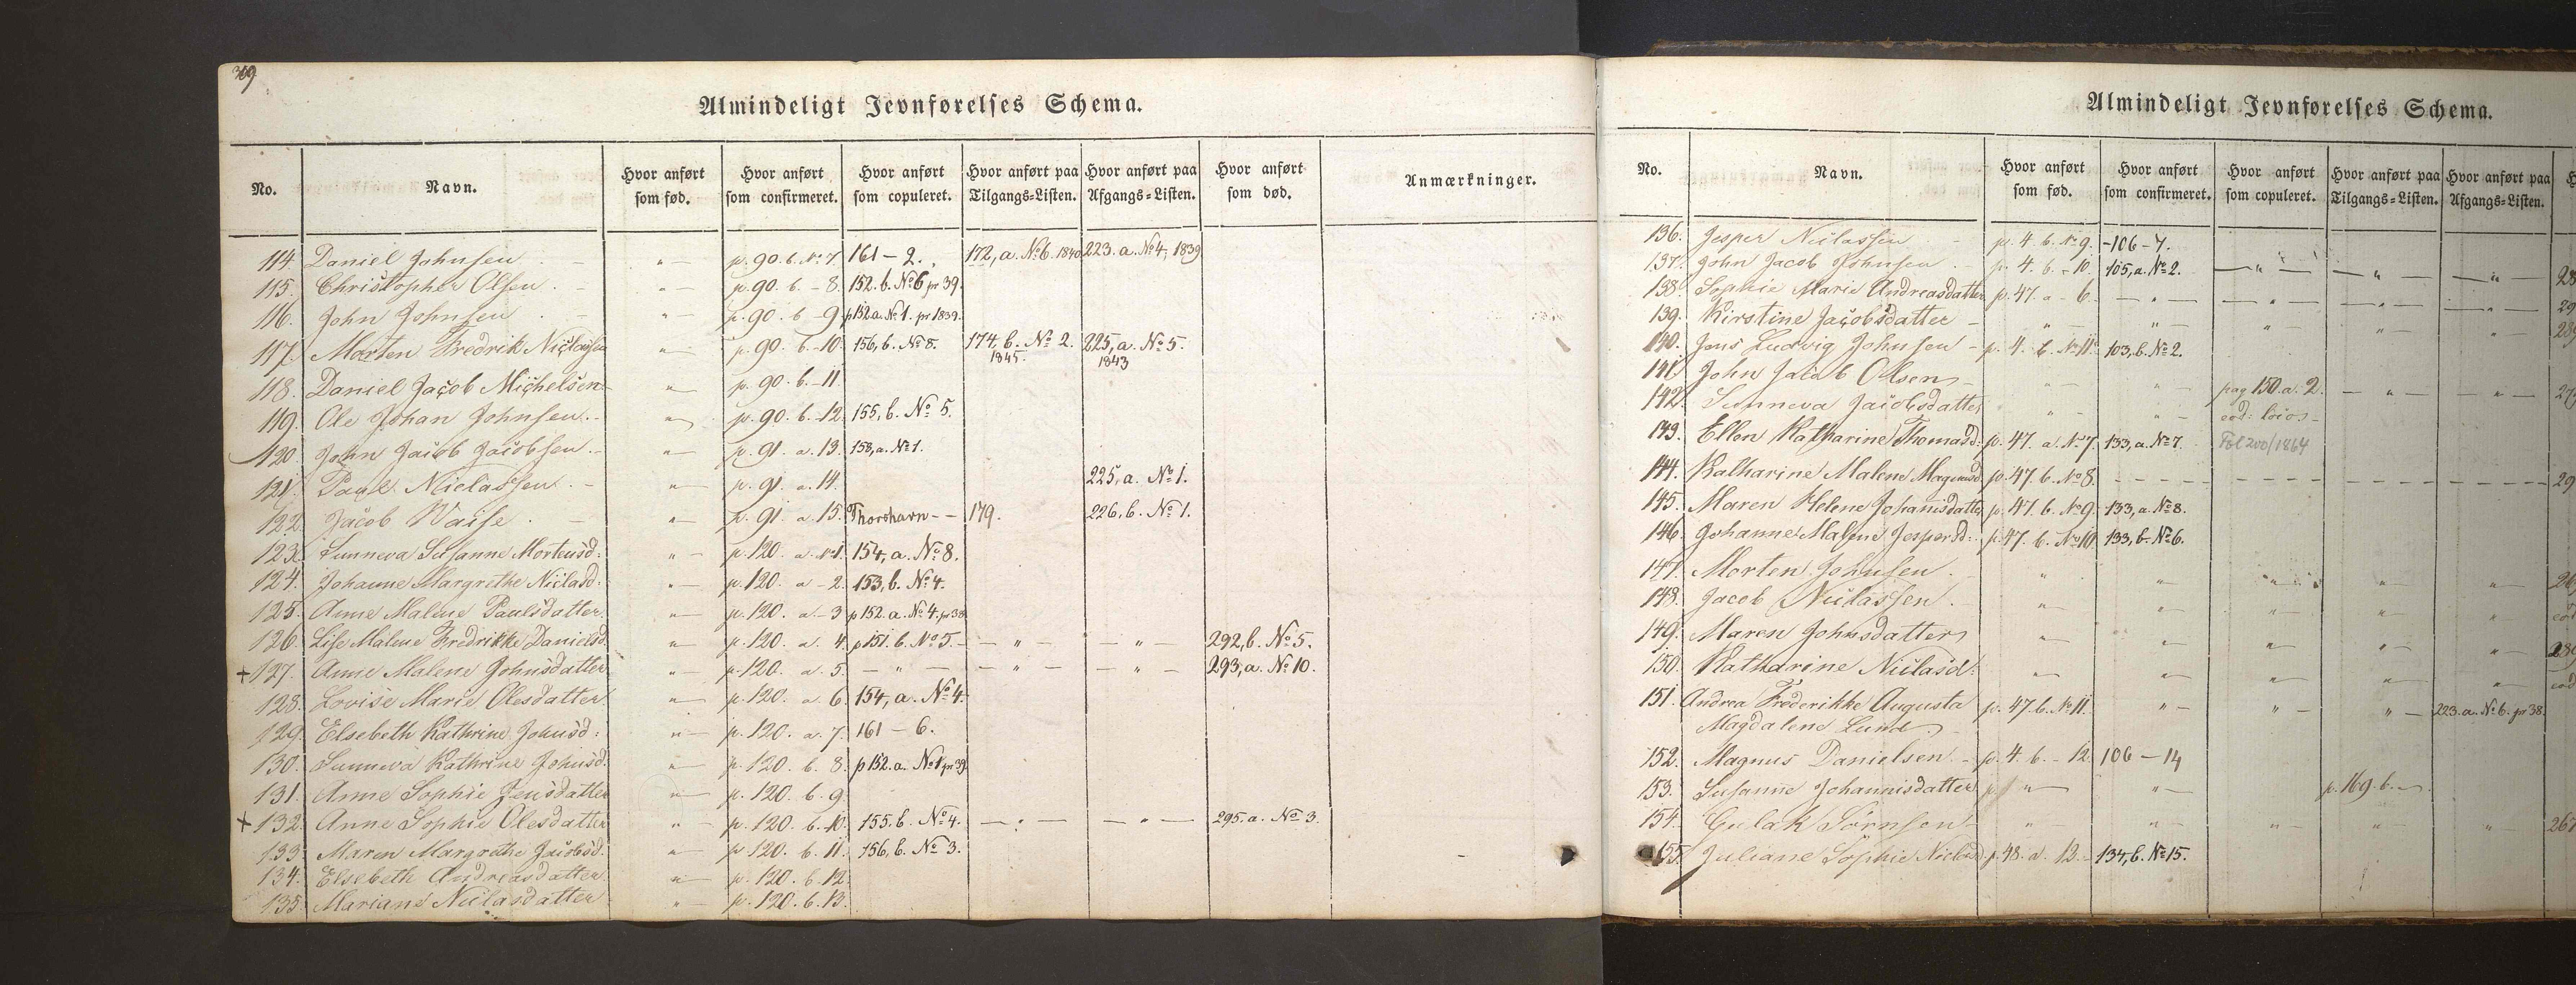 309
Almindeligt Jevnførelses Schema.
No. Navn. Hvor anført som fød. Hvor anført som confirmeret. Hvor anført som copuleret. Hvor anført paa Tilgangs-Listen. Hvor anført paa Afgangs-Listen. Hvor anført som død. Anmærkninger.
114. Daniel Johnsen - " - p. 90. b. No 7. 161 - 2. 172, a. No 6. 1840 223. a. No 4, 1839
115. Christopher Olsen. - " - p. 90. b. - 8. 152. b. No 6 pr 39.
116. John Johnsen - " - p. 90. b - 9 p 152 a. No 1. pr 1839.
117. Morten Fredrik Niclassen " - p. 90. b. - 10. 156, b. No 8. 174, b. No 2. 1845. 225, a. No 5. 1843
118. Daniel Jacob Michelsen " - p. 90. b. - 11.
119. Ole Johan Johnsen. - " p. 90. b. - 12. 155, b. No 5.
120. John Jacob Jacobsen. - " - p. 91. a. 13. 158, a. No 1.
121. Paul Niclassen. - " - p. 91. a. 14. 225, a. No 1.
122. Jacob Waise. - " - p. 91. a. 15. Thorshavn - - 179. 226, b. No 1.
123. Sunneva Susanne Mortensd: " - p. 120. a. No 1. 154, a. No 8.
124. Johanne Margrethe Niclasd: " - p. 120. a - 2. 153, b. No 4.
125. Anne Malene Paulsdatter. " - p. 120. a - 3 p 152. a. No 4. pr 38
126. Lise Malene Fredrikke Danielsd. " - p. 120. a. 4. p 151. b. No 5. - " - - " - 292, b. No 5.
+ 127. Anne Malene Johnsdatter " - p. 120. a. 5. - " - - " - - " - 293, a. No 10.
128. Lovise Marie Olesdatter. " - p. 120. a 6. 154, a. No 4.
129. Elsebeth Kathrine Johnsd: " - p. 120. a. 7. 161 - 6.
130. Sunneva Kathrine Johnsd. " - p. 120. b. 8. p 152. a. No 1 pr 39.
131. Anne Sophie Jensdatter " - p. 120. b. 9.
+ 132. Anne Sophie Olesdatter " - p. 120. b. 10. 155. b. No 4. - " - - " - 295. a. No 3.
133. Maren Margrethe Jacobsd. " - p. 120. b. 11. 156, b. No 3.
134. Elsebeth Andreasdatter. " - p. 120. b. 12.
135. Mariane Niclasdatter " - p. 120. b. 13.
Almindeligt Jevnførelses Schema.
No. Navn. Hvor anført som fød. Hvor anført som confirmeret. Hvor anført som copuleret. Hvor anført paa Tilgangs-Listen. Hvor anført paa Afgangs-Listen.
136. Jesper Niclassen - p. 4. b. No 9. - 106 - 7.
137. John Jacob Johnsen - p. 4. b. - 10. 105, a. No 2. - " - - " - - " - 28
138. Sophie Marie Andreasdatter p. 47. a - 6. - " - - " - - " - - " - 29
139. Kirstine Jacobsdatter - " - " - " " - " 28
140. Jens Ludvig Johnsen - p. 4. b. No 11. 103, b. No 2.
141. John Jacob Olsen - " - " - pag 150. a. 2. - " - - " - 27
142. Sunneva Jacobsdatter " - " - eod: locos -
143. Ellen Katharine Thomasd: p. 47. a. No 7. 133, a. No 7. Fol 200/1864
144. Katharine Malene Magnusd. p. 47. b. No 8. - - - - - - 29
145. Maren Helene Johanisdatter p. 47. b. No 9. 133, a. No 8.
146. Johanne Malene Jespersd. p. 47. b. No 10. 133, b. No 6.
147. Morten Johnsen. " " - " - " - " - 26
148. Jacob Niclassen. - " - " - " - " - " eod
149. Maren Johnsdatter " - " - " - " - " - 280
150. Katharine Niclasd: " - " - " - " - " - eod
151. Andrea Frederikke Augusta p. 47. b. No 11. " - " - " - 223. a. No 6. pr 38.
Magdalene Lund.
152. Magnus Danielsen. - p. 4. b. - 12. 106 - 14
153. Susanne Johannisdatter " - " - p. 169. b. -
154. Gulak Sørnsen " - " - " " - " 267
155. Juliane Sophie Niclasd. p. 48. a. 12. - 134, b. No 15.